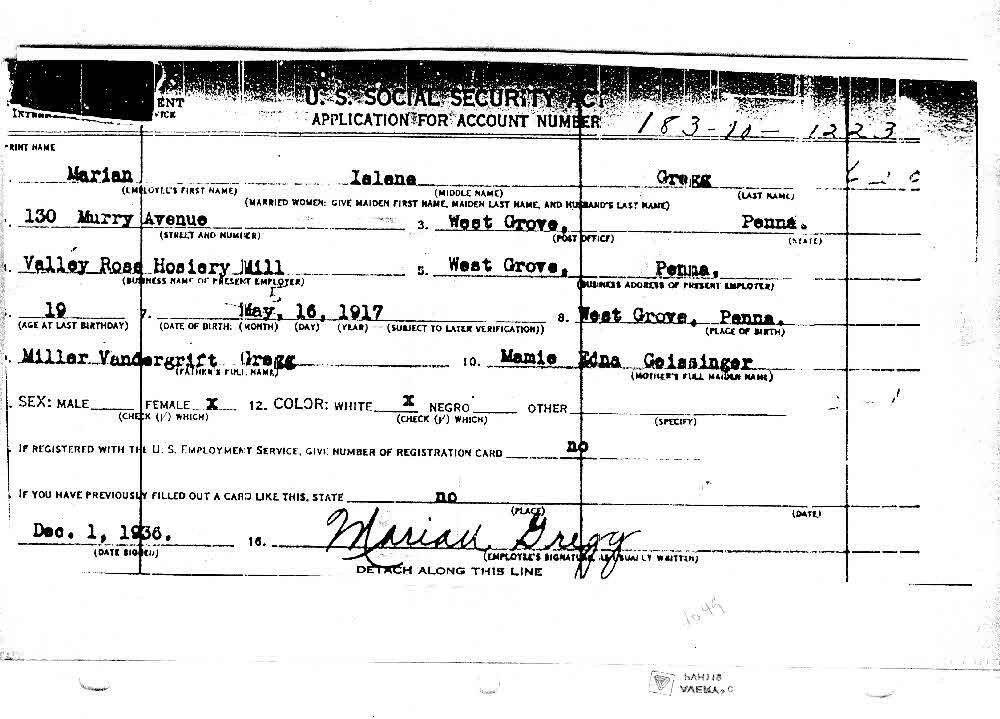 ENT
U. S. SOCIAL SECURITY ACT
VICE
APPLICATION FOR ACCOUNT NUMBER 183-10-1223
PRINT NAME
Marian Islene Gregg
(EMPLOYEE'S FIRST NAME) (MIDDLE NAME) (LAST NAME)
(MARRIED WOMEN: GIVE MAIDEN FIRST NAME, MAIDEN LAST NAME, AND HUSBAND'S LAST NAME)
130 Murry Avenue 3. West Grove, Penna.
(STREET AND NUMBER) (POST OFFICE) (STATE)
Valley Rose Hosiery Mill 5. West Grove, Penna.
(BUSINESS NAME OF PRESENT EMPLOYER) (BUSINESS ADDRESS OF PRESENT EMPLOYER)
19 7. May, 16, 1917 8. West Grove, Penna.
(AGE AT LAST BIRTHDAY) (DATE OF BIRTH: (MONTH) (DAY) (YEAR) (SUBJECT TO LATER VERIFICATION)) (PLACE OF BIRTH)
Miller Vandergrift Gregg 10. Mamie Edna Geissinger
(FATHER'S FULL NAME) (MOTHER'S FULL MAIDEN NAME)
SEX: MALE FEMALE X 12. COLOR: WHITE X NEGRO OTHER
(CHECK (√) WHICH) (CHECK (√) WHICH) (SPECIFY)
IF REGISTERED WITH THE U. S. EMPLOYMENT SERVICE, GIVE NUMBER OF REGISTRATION CARD no
IF YOU HAVE PREVIOUSLY FILLED OUT A CARD LIKE THIS, STATE no
(PLACE) (DATE)
Dec. 1, 1936. 16. Marian Gregg
(DATE SIGNED) (EMPLOYEE'S SIGNATURE, AS USUALLY WRITTEN)
DETACH ALONG THIS LINE
1049